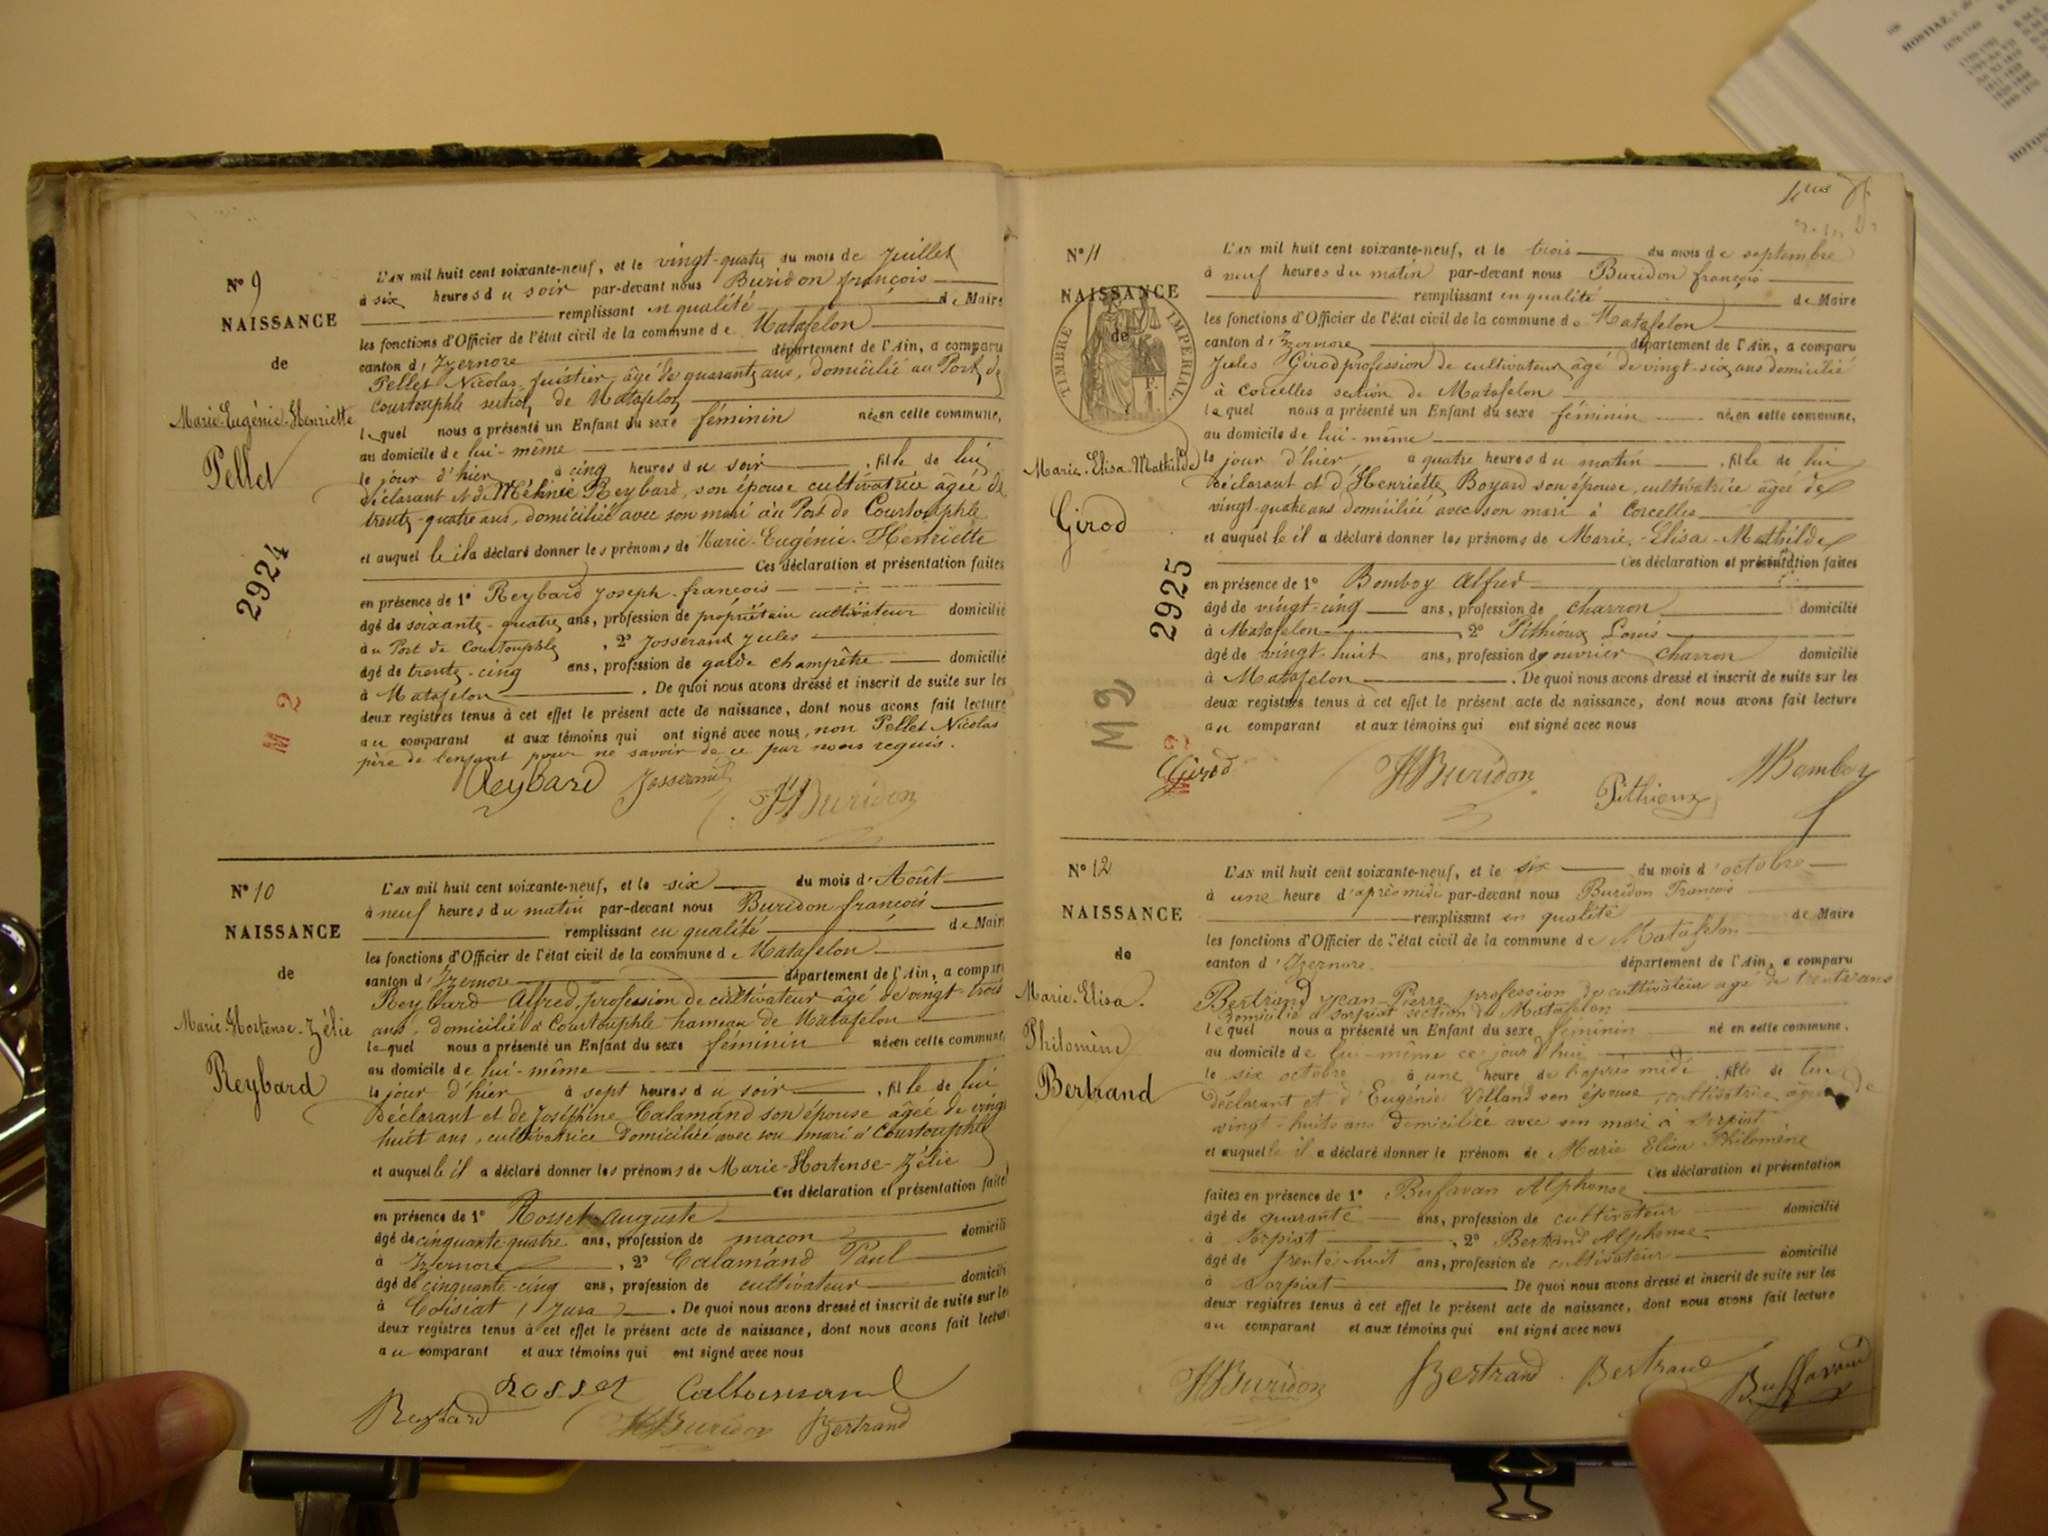 N° 9
NAISSANCE
de
Marie-Eugénie-Henriette
Pellet
2924
M 2
L'AN mil huit cent soixante-neuf, et le vingt-quatre du mois de Juillet
à six heures du soir par-devant nous Buridon françois
remplissant en qualité de Maire
les fonctions d'Officier de l'état civil de la commune de Matafelon
canton d'Izernore département de l'Ain, a comparu
Pellet Nicolas, âgé de quarante ans, domicilié au Port de
Courtouphle section de Matafelon
lequel nous a présenté un Enfant du sexe féminin née en cette commune,
au domicile de lui-même
le jour d'hier à cinq heures du soir, fille de lui
déclarant et de Reybard, son épouse cultivatrice âgée de
trente-quatre ans, domiciliée avec son mari au Port de Courtouphle
et auquel le il a déclaré donner les prénoms de Marie-Eugénie-Henriette
Ces déclaration et présentation faites
en présence de 1° Reybard Joseph-françois
âgé de soixante-quatre ans, profession de propriétaire cultivateur domicilié
au Port de Courtouphle, 2° Josserand Jules
âgé de trente-cinq ans, profession de garde champêtre domicilié
à Matafelon. De quoi nous avons dressé et inscrit de suite sur les
deux registres tenus à cet effet le présent acte de naissance, dont nous avons fait lecture
au comparant et aux témoins qui ont signé avec nous, non Pellet Nicolas
père de l'enfant pour ne savoir de ce par nous requis.
Reybard Josserand
fBuridon
N° 10
NAISSANCE
de
Marie-Hortense-Zélie
Reybard
L'AN mil huit cent soixante-neuf, et le six du mois d'Août
à neuf heures du matin par-devant nous Buridon françois
remplissant en qualité de Mair
les fonctions d'Officier de l'état civil de la commune de Matafelon
canton d'Izernore département de l'Ain, a comparu
Reybard Alfred, profession de cultivateur âgé de vingt-trois
ans, domicilié à Courtouphle hameau de Matafelon
lequel nous a présenté un Enfant du sexe féminin née en cette commune,
au domicile de lui-même
le jour d'hier à sept heures du soir, fille de lui
déclarant et de Joséphine Calamand son épouse âgée de vingt
huit ans, cultivatrice domiciliée avec son mari à Courtouphle
et auquel le il a déclaré donner les prénoms de Marie-Hortense-Zélie
Ces déclaration et présentation faite
en présence de 1° Rosset auguste
âgé de cinquante-quatre ans, profession de maçon domicili
à Izernore, 2° Calamand Paul
âgé de cinquante-cinq ans, profession de cultivateur domicili
à Coisiat (Jura). De quoi nous avons dressé et inscrit de suite sur le
deux registres tenus à cet effet le présent acte de naissance, dont nous avons fait lectur
au comparant et aux témoins qui ont signé avec nous
Reybard Rosset Callamand
fBuridon Bertrand
N° 11
NAISSANCE
de
TIMBRE IMPERIAL.
Marie-Elisa-Mathilde
Girod
2925
M 2
L'AN mil huit cent soixante-neuf, et le trois du mois de septembre
à neuf heures du matin par-devant nous Buridon françois
remplissant en qualité de Maire
les fonctions d'Officier de l'état civil de la commune de Matafelon
canton d'Izernore département de l'Ain, a comparu
Jules Girod profession de cultivateur âgé de vingt-six ans domicilié
à Corcelles section de Matafelon
lequel nous a présenté un Enfant du sexe féminin née en cette commune,
au domicile de lui-même
le jour d'hier à quatre heures du matin, fille de lui
déclarant et d'Henriette Boyard son épouse, cultivatrice âgée de
vingt-quatre ans domiciliée avec son mari à Corcelles
et auquel le il a déclaré donner les prénoms de Marie-Elisa-Mathilde
Ces déclaration et présentation faites
en présence de 1° Bomboy Alfred
âgé de vingt-cinq ans, profession de charron domicilié
à Matafelon, 2° Pithioux Louis
âgé de vingt-huit ans, profession d'ouvrier charron domicilié
à Matafelon. De quoi nous avons dressé et inscrit de suite sur les
deux registres tenus à cet effet le présent acte de naissance, dont nous avons fait lecture
au comparant et aux témoins qui ont signé avec nous
Girod fBuridon Pithioux Bomboy
N° 12
NAISSANCE
de
Marie-Elisa
Philomène
Bertrand
L'AN mil huit cent soixante-neuf, et le six du mois d'octobre
à une heure d'après midi par-devant nous Buridon François
remplissant en qualité de Maire
les fonctions d'Officier de l'état civil de la commune de Matafelon
canton d'Izernore département de l'Ain, a comparu
Bertrand Jean-Pierre profession de cultivateur âgé de trente ans
domicilié à Sorpiat section de Matafelon
lequel nous a présenté un Enfant du sexe féminin né en cette commune.
au domicile de lui-même ce jour d'hui
le six octobre à une heure de l'après midi, fille de lui
déclarant et d'Eugénie Volland son épouse, cultivatrice âgée de
vingt-huit ans domiciliée avec son mari à Sorpiat
et auquel le il a déclaré donner le prénom de Marie Elisa Philomène
Ces déclaration et présentation
faites en présence de 1° Bufavan Alphonse
âgé de quarante ans, profession de cultivateur domicilié
à Sorpiat, 2° Bertrand Alphonse
âgé de trente huit ans, profession de cultivateur domicilié
à Sorpiat De quoi nous avons dressé et inscrit de suite sur les
deux registres tenus à cet effet le présent acte de naissance, dont nous avons fait lecture
au comparant et aux témoins qui ont signé avec nous
fBuridon Bertrand Bertrand Buffavand